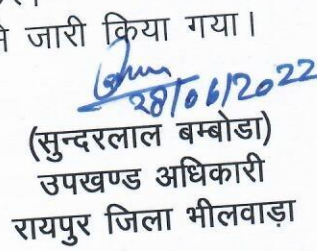 जारी किया गया।
28/06/2022
(सुन्दरलाल बम्बोडा)
उपखण्ड अधिकारी
रायपुर जिला भीलवाड़ा